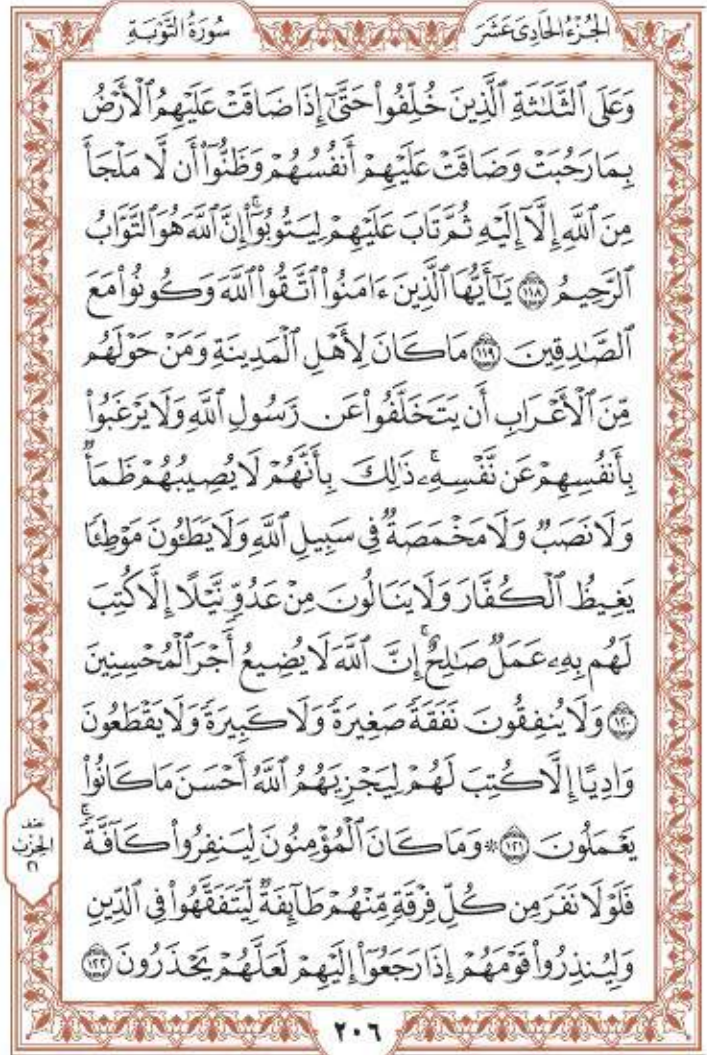 سُورَةُ التَّوْبَةِ
الجُزْءُ الحَادِى عَشَرَ
وَعَلَى ٱلثَّلَٰثَةِ ٱلَّذِينَ خُلِّفُوا۟ حَتَّىٰٓ إِذَا ضَاقَتْ عَلَيْهِمُ ٱلْأَرْضُ
بِمَا رَحُبَتْ وَضَاقَتْ عَلَيْهِمْ أَنفُسُهُمْ وَظَنُّوٓا۟ أَن لَّا مَلْجَأَ
مِنَ ٱللَّهِ إِلَّآ إِلَيْهِ ثُمَّ تَابَ عَلَيْهِمْ لِيَتُوبُوٓا۟ ۚ إِنَّ ٱللَّهَ هُوَ ٱلتَّوَّابُ
ٱلرَّحِيمُ ١١٨ يَٰٓأَيُّهَا ٱلَّذِينَ ءَامَنُوا۟ ٱتَّقُوا۟ ٱللَّهَ وَكُونُوا۟ مَعَ
ٱلصَّٰدِقِينَ ١١٩ مَا كَانَ لِأَهْلِ ٱلْمَدِينَةِ وَمَنْ حَوْلَهُم
مِّنَ ٱلْأَعْرَابِ أَن يَتَخَلَّفُوا۟ عَن رَّسُولِ ٱللَّهِ وَلَا يَرْغَبُوا۟
بِأَنفُسِهِمْ عَن نَّفْسِهِۦ ۚ ذَٰلِكَ بِأَنَّهُمْ لَا يُصِيبُهُمْ ظَمَأٌ
وَلَا نَصَبٌ وَلَا مَخْمَصَةٌ فِى سَبِيلِ ٱللَّهِ وَلَا يَطَـُٔونَ مَوْطِئًا
يَغِيظُ ٱلْكُفَّارَ وَلَا يَنَالُونَ مِنْ عَدُوٍّ نَّيْلًا إِلَّا كُتِبَ
لَهُم بِهِۦ عَمَلٌ صَٰلِحٌ ۚ إِنَّ ٱللَّهَ لَا يُضِيعُ أَجْرَ ٱلْمُحْسِنِينَ
١٢٠ وَلَا يُنفِقُونَ نَفَقَةً صَغِيرَةً وَلَا كَبِيرَةً وَلَا يَقْطَعُونَ
وَادِيًا إِلَّا كُتِبَ لَهُمْ لِيَجْزِيَهُمُ ٱللَّهُ أَحْسَنَ مَا كَانُوا۟
يَعْمَلُونَ ١٢١ ۞ وَمَا كَانَ ٱلْمُؤْمِنُونَ لِيَنفِرُوا۟ كَآفَّةً ۚ
فَلَوْلَا نَفَرَ مِن كُلِّ فِرْقَةٍ مِّنْهُمْ طَآئِفَةٌ لِّيَتَفَقَّهُوا۟ فِى ٱلدِّينِ
وَلِيُنذِرُوا۟ قَوْمَهُمْ إِذَا رَجَعُوٓا۟ إِلَيْهِمْ لَعَلَّهُمْ يَحْذَرُونَ ١٢٢
الحِزْبُ
٢١
٢٠٦